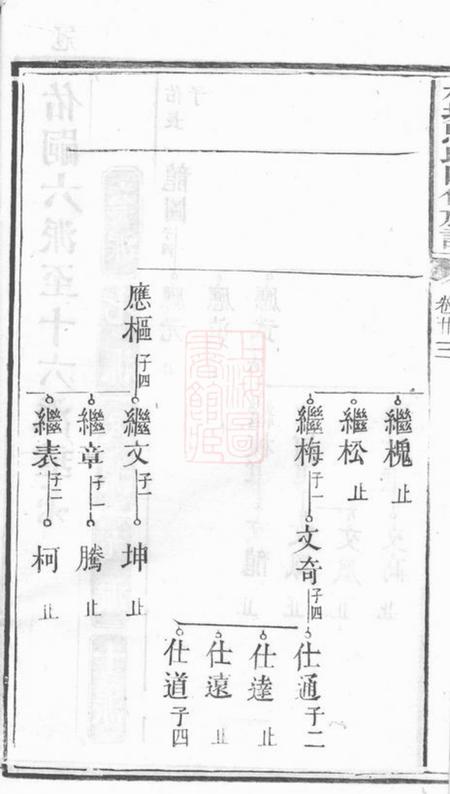 卷廿三
繼槐 止
繼松 止
繼梅 子一
文奇 子四
仕通 子二
仕達 止
仕遠 止
仕道 子四
應樞 子四
繼文 子一
坤 止
繼章 子一
騰 止
繼表 子二
柯 止
上海圖書館藏